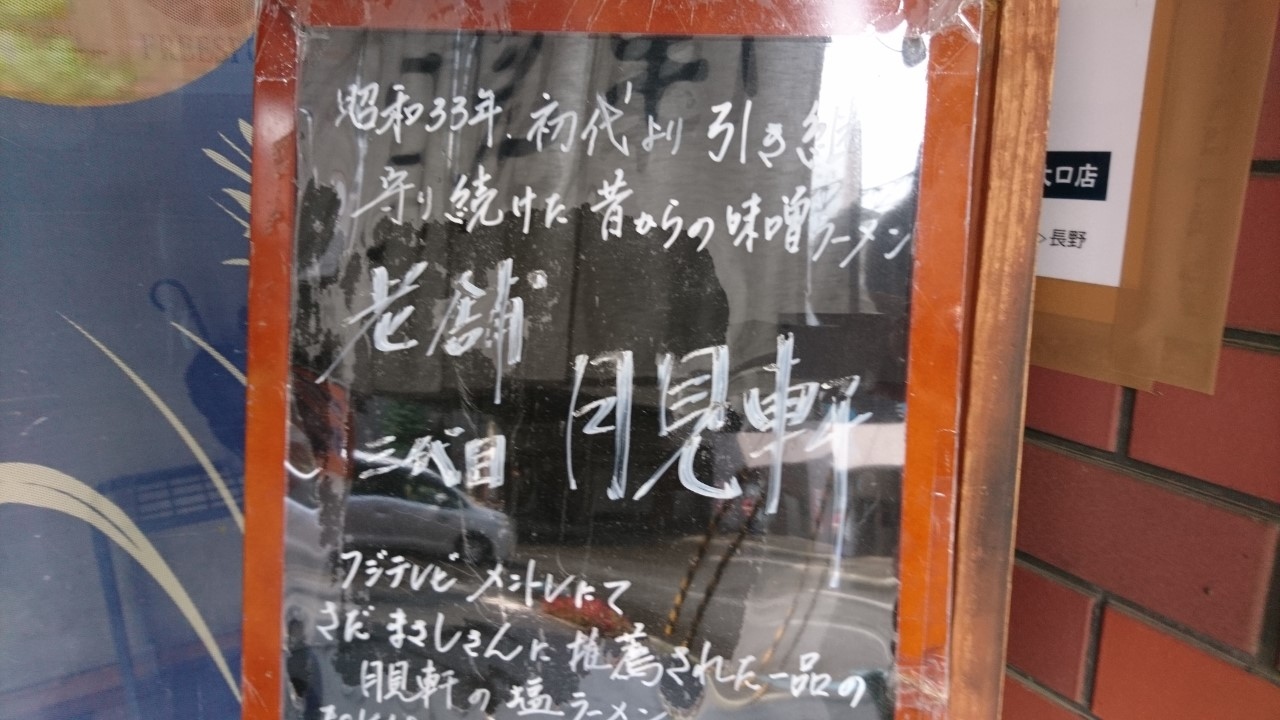 FREES
昭和33年.初代より引き継
守り続けた昔からの味噌ラーメン
老舗
三代目 月見軒
フジテレビ メントレにて
さだまさしさんに推薦された一品の
月見軒の塩ラーメン
大口店
>長野